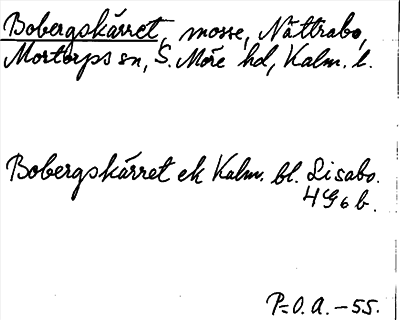 Bobergskärret, mosse, Nättrabo,
Mortorps sn, S. Möre hd, Kalm. l.
Bobergskärret ek Kalm. bl. Lisabo.
4G6b.
P=O.A.-55.